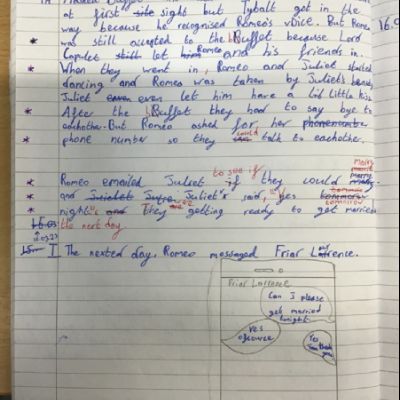 at first site sight but Tybalt got in the
way because he recognised Romeo's voice. But Romeo
was still accepted to the Buffet because Lord
Capulet still lot him Romeo and his friends in.
When they went in, Romeo and Juliet started
dancing and Romeo was taken by Juliet's beauty
Juliet even even let him have a little kiss
After the Buffet they had to say bye to
eachother. But Romeo asked for her phonenumbe
phone number so they could talk to eachother.
Romeo emailed Juliet to see if if they could marry
and Juliet Juliet's said, "Yes tomorrow
night" and They are getting ready to get married
the next day.
I The nexted day, Romeo messaged Friar Laurence.
Friar Lorrence
Can I please
get married
tonight
Yes
ofcourse
Yay
Thank
you